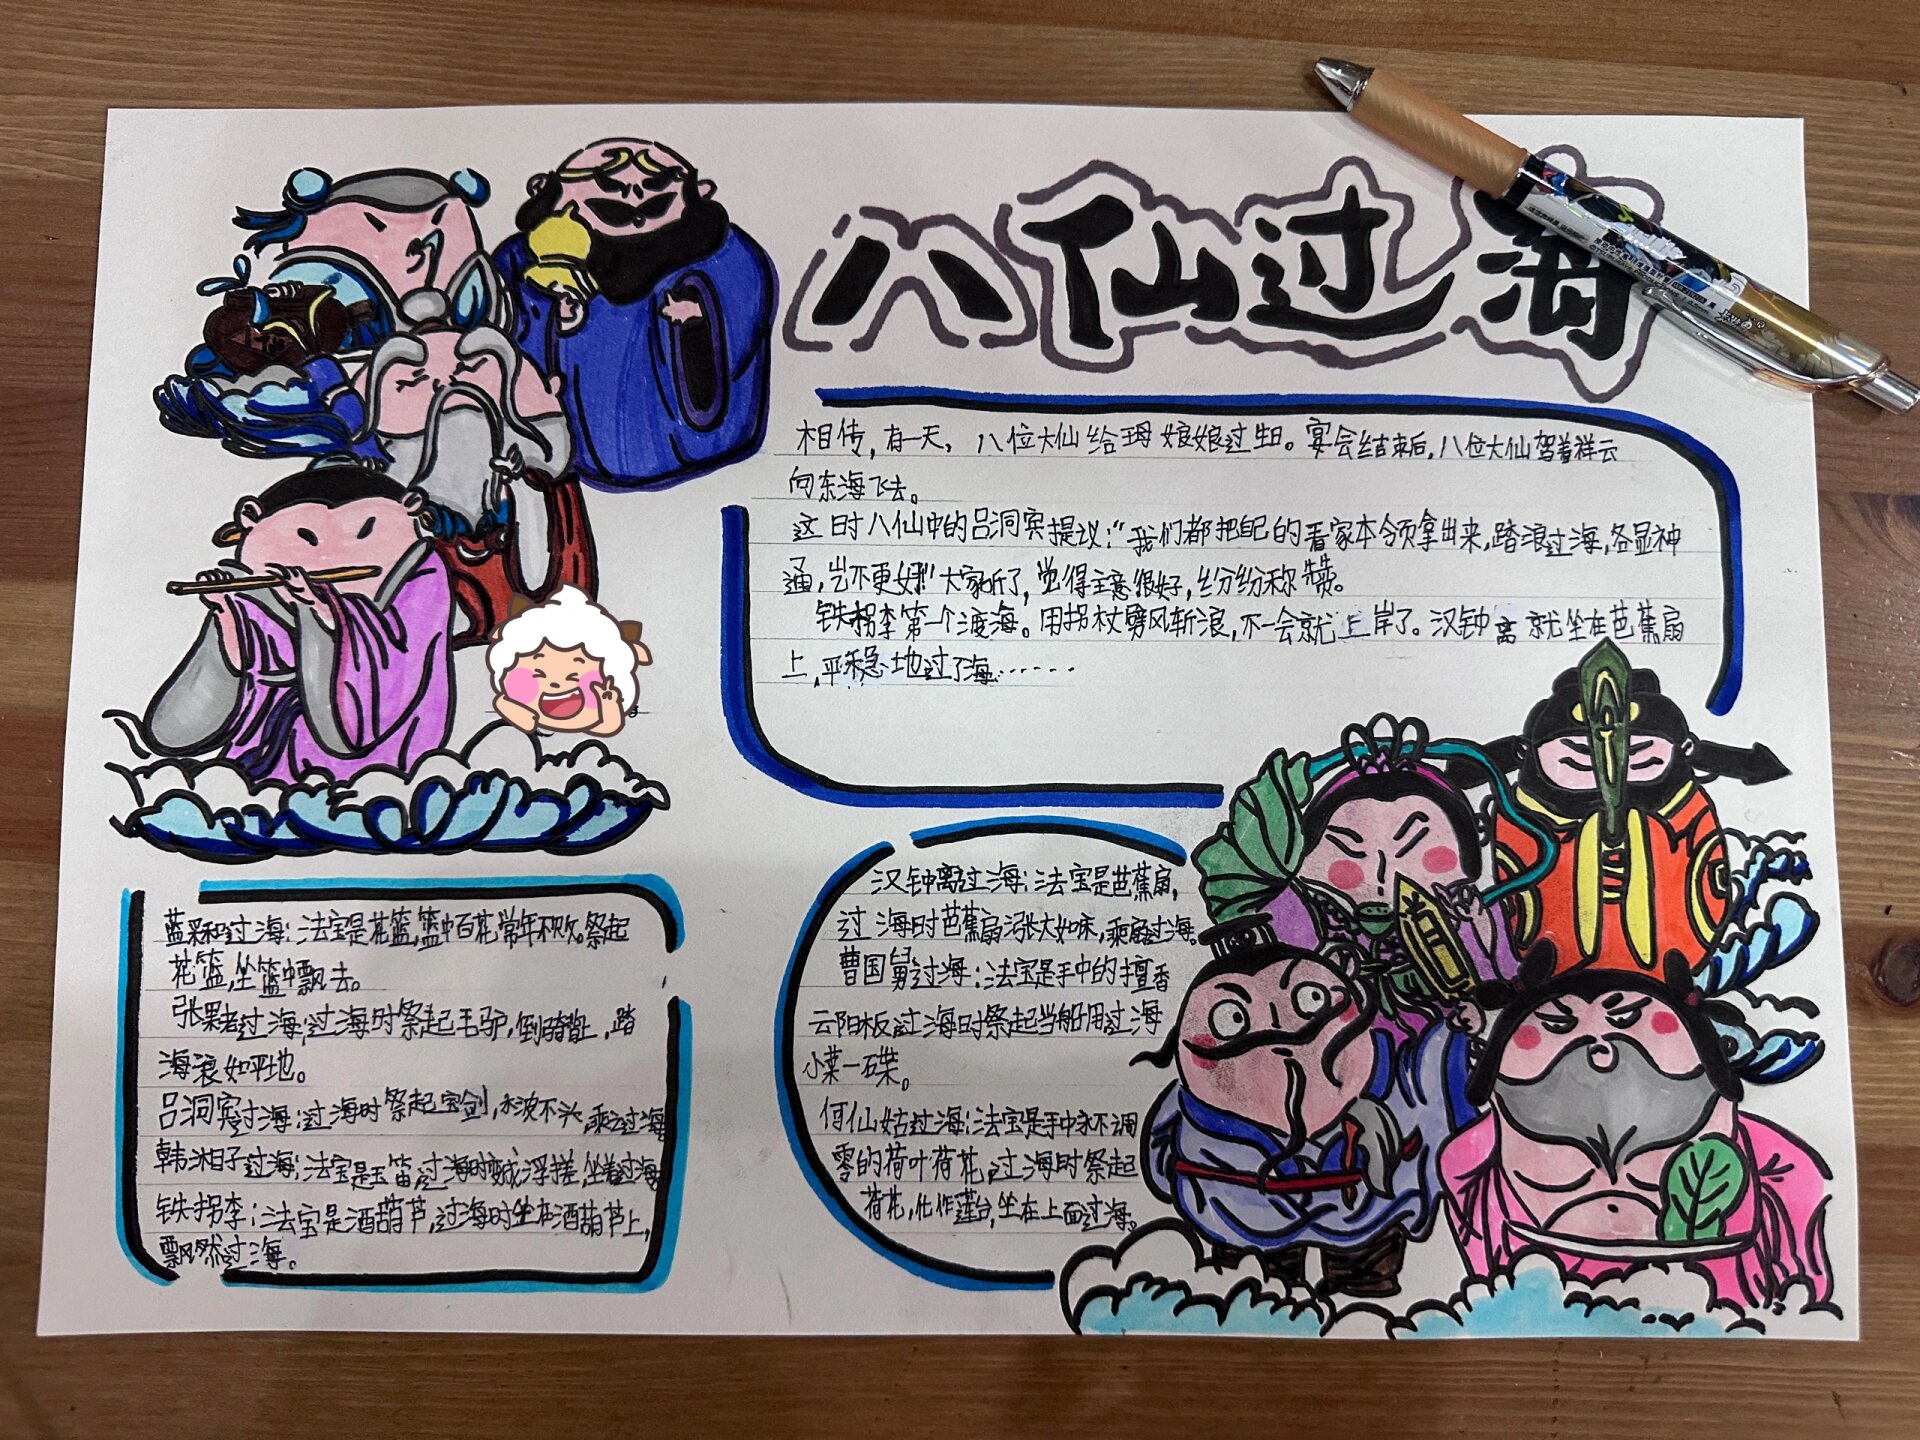 八仙过海
相传,有一天,八位大仙给王母娘娘过生日。宴会结束后,八位大仙驾着祥云
向东海飞去。
这时八仙中的吕洞宾提议:“我们都把自己的看家本领拿出来,踏浪过海,各显神
通,岂不更好!”大家听了,觉得主意很好,纷纷称赞。
铁拐李第一个渡海。用拐杖劈风斩浪,不一会就上岸了。汉钟离就坐在芭蕉扇
上,平稳地过了海……
蓝采和过海:法宝是花篮,篮中百花常年不败。祭起
花篮,坐篮中飘去。
张果老过海:过海时祭起毛驴,倒骑驴上,踏
海浪如平地。
吕洞宾过海:过海时祭起宝剑,水波不兴,乘云过海
韩湘子过海:法宝是玉笛,过海时变成浮搓,坐着过海
铁拐李:法宝是酒葫芦,过海时坐在酒葫芦上,
飘然过海。
汉钟离过海:法宝是芭蕉扇,
过海时芭蕉扇涨大如床,乘扇过海。
曹国舅过海:法宝是手中的檀香
云阳板,过海时祭起当船用过海
小菜一碟。
何仙姑过海:法宝是手中永不凋
零的荷叶荷花,过海时祭起
荷花,化作莲台,坐在上面过海。